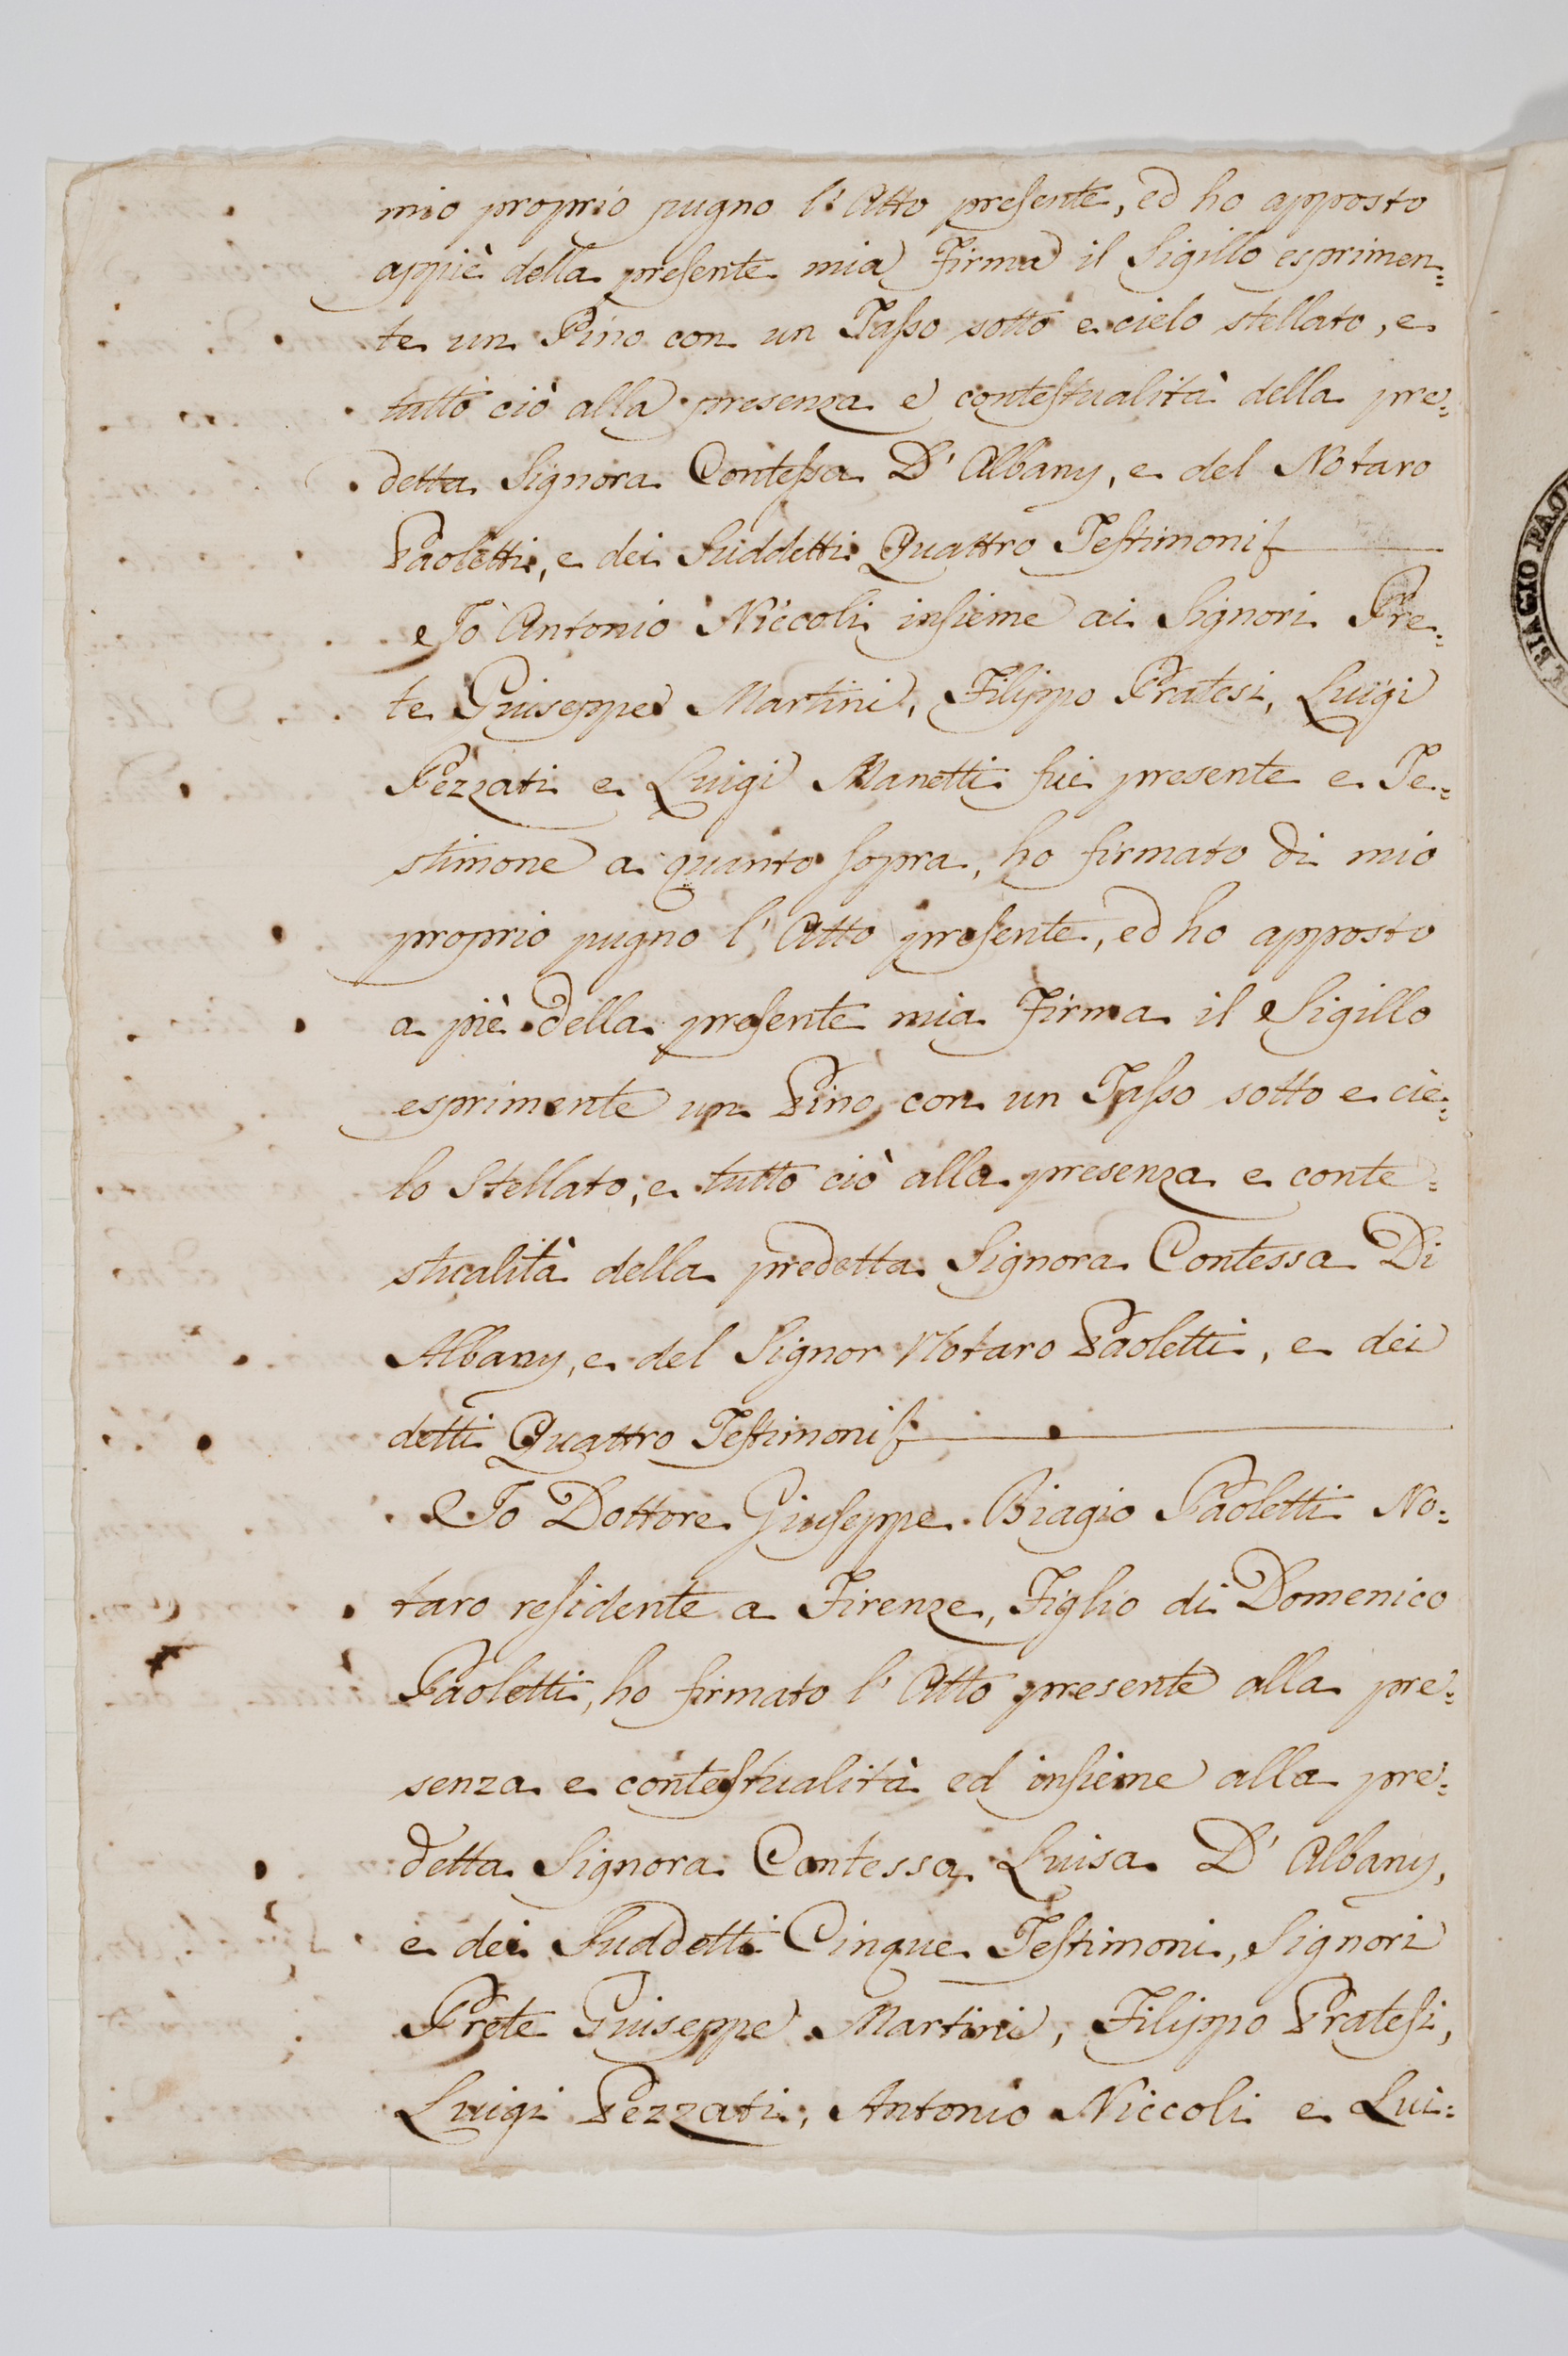 mio proprio pugno l'Atto presente, ed ho apposto
appiè della presente mia Firma il Sigillo esprimen=
te un Pino con un Tasso sotto e cielo stellato, e
tutto ciò alla presenza e contestualità della pre=
detta Signora Contessa D'Albany, e del Notaro
Paoletti, e dei Suddetti Quattro Testimonij
Io Antonio Niccoli insieme ai Signori Pre=
te Giuseppe Martini, Filippo Pratesi, Luigi
Pezzati e Luigi Manetti fui presente e Te=
stimone a quanto sopra, ho firmato di mio
proprio pugno l'Atto presente, ed ho apposto
a piè della presente mia Firma il Sigillo
esprimente un Pino con un Tasso sotto e cie=
lo Stellato, e tutto ciò alla presenza e conte=
stualità della predetta Signora Contessa Di
Albany, e del Signor Notaro Paoletti, e dei
detti Quattro Testimonij
Io Dottore Giuseppe Biagio Paoletti No=
taro residente a Firenze, Figlio di Domenico
Paoletti, ho firmato l'Atto presente alla pre=
senza e contestualità ed insieme alla pre=
detta Signora Contessa Luisa D'Albany,
e dei Suddetti Cinque Testimoni, Signori
Prete Giuseppe Martini, Filippo Pratesi,
Luigi Pezzati, Antonio Niccoli e Lui=
BIAGIO PAO